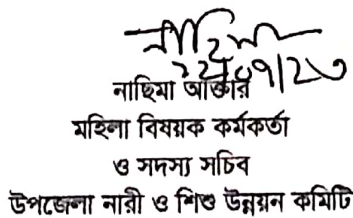 নাছিমা আক্তার
মহিলা বিষয়ক কর্মকর্তা
ও সদস্য সচিব
উপজেলা নারী ও শিশু উন্নয়ন কমিটি